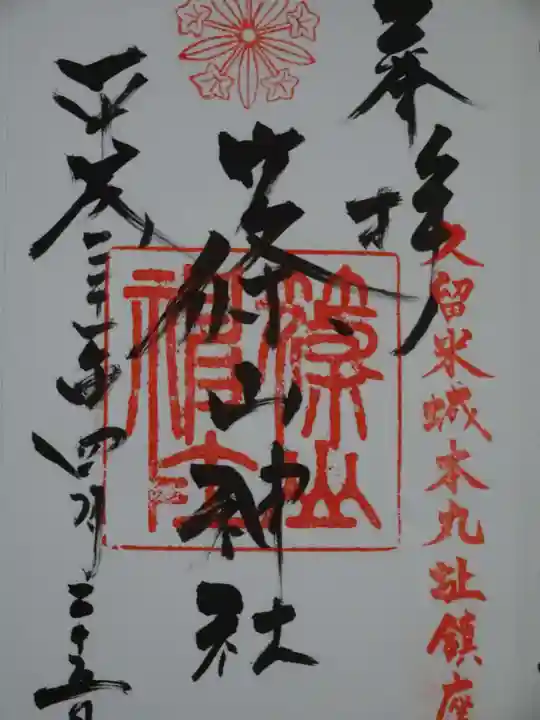 奉拝
久留米城本丸址鎮座
篠山神社
篠山神社
平成二十一年四月二十五日